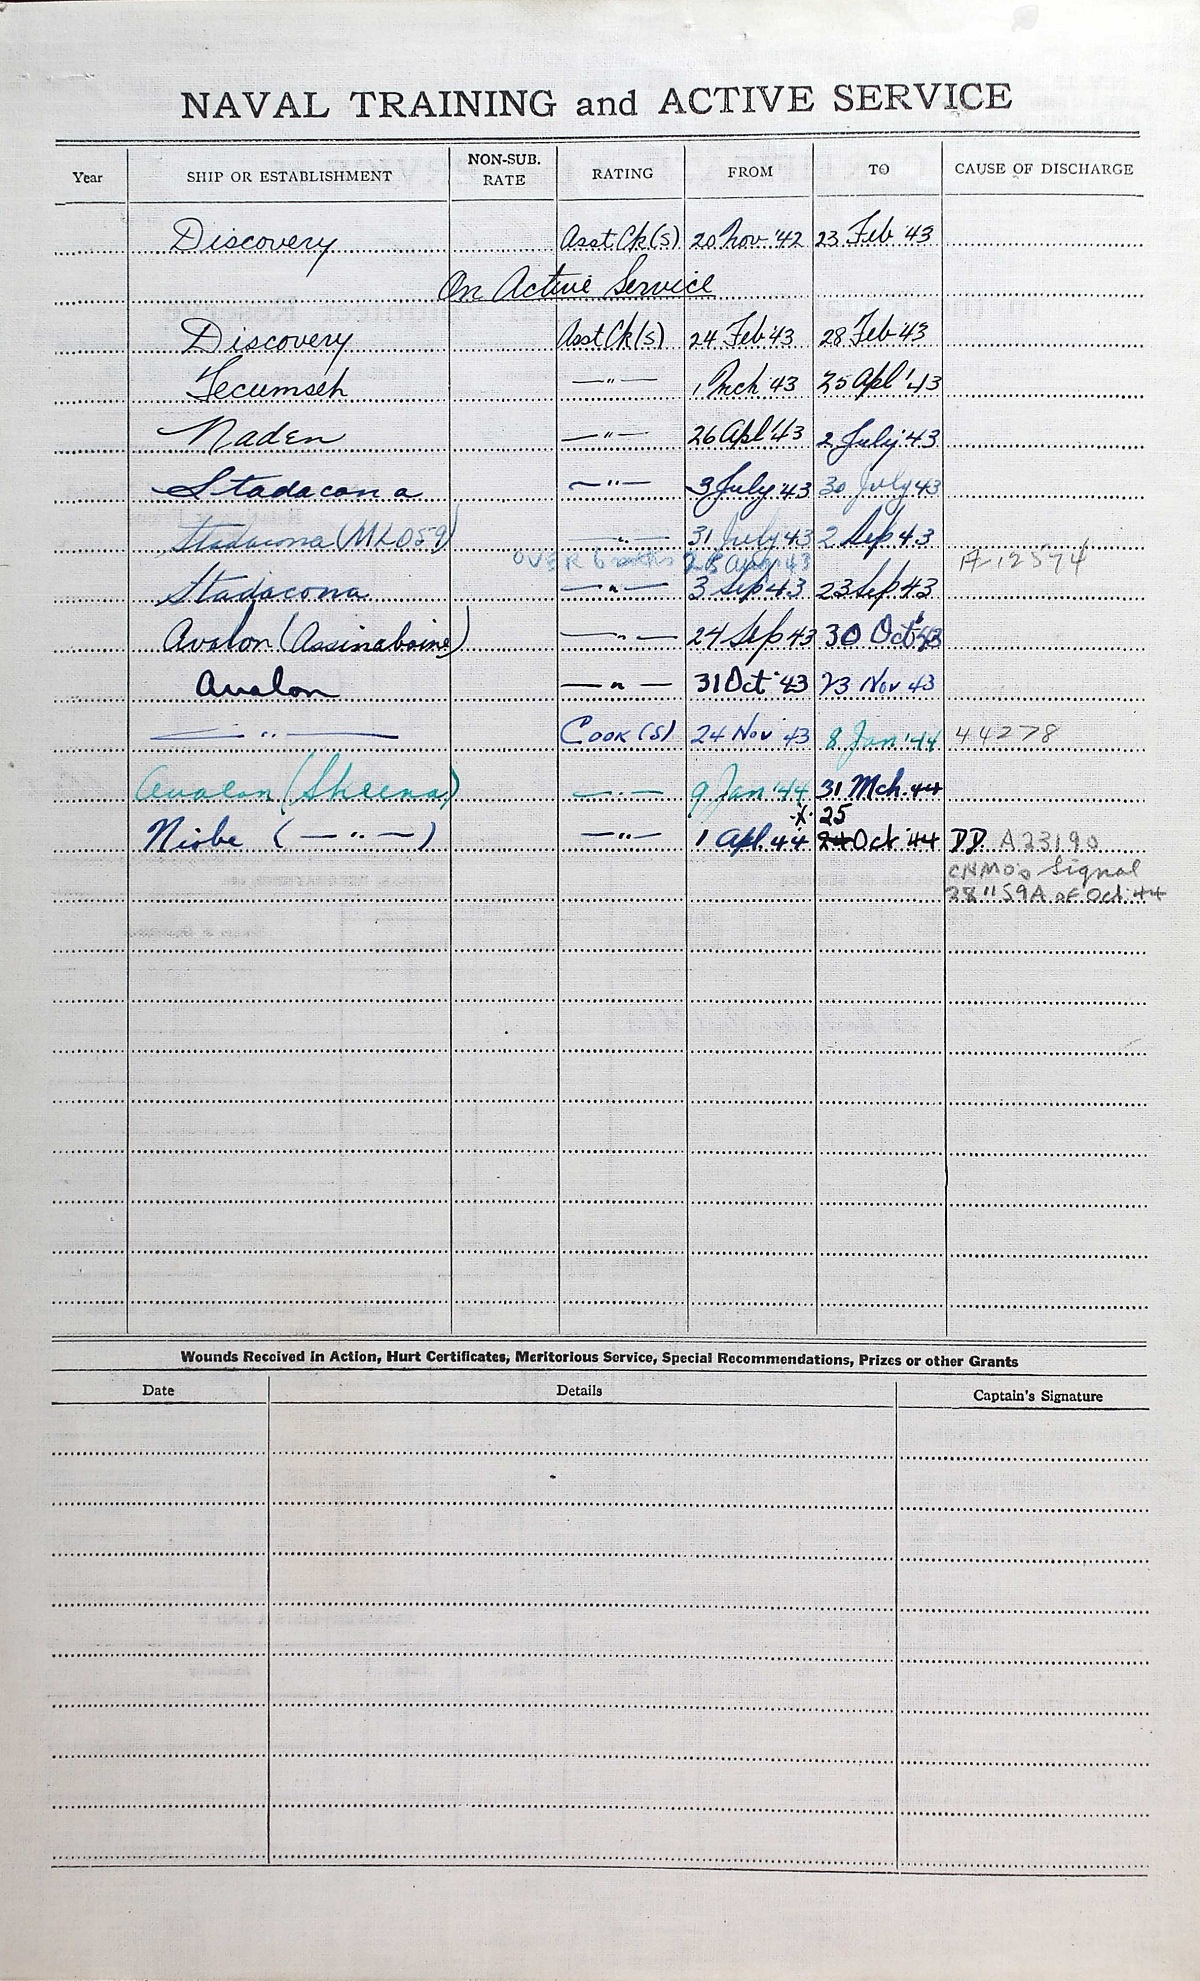 NAVAL TRAINING and ACTIVE SERVICE
Year SHIP OR ESTABLISHMENT NON-SUB. RATE RATING FROM TO CAUSE OF DISCHARGE
Discovery Asst Ck(s) 20 Nov. '42 23 Feb '43
On Active Service
Discovery Asst Ck(s) 24 Feb '43 28 Feb '43
Tecumseh —"— 1 Mch '43 25 Apl '43
Naden —"— 26 Apl '43 2 July '43
Stadacona —"— 3 July '43 30 July 43
Stadacona (ML059) —"— 31 July 43 2 Sep 43
OVER 6 mths 28 Aug 43 A 12574
Stadacona —"— 3 Sep 43 23 Sep 43
Avalon (Assinaboine) —"— 24 Sep 43 30 Oct '43
Avalon —"— 31 Oct '43 23 Nov 43
—"— Cook (S) 24 Nov 43 8 Jan '44 44278
Avalon (Skeena) —"— 9 Jan '44 31 Mch. 44
25
Niobe (—"—) —"— 1 Apl. 44 24 Oct '44 DD A23190
CNMO's Signal
28"59A of Oct. 44
Wounds Received in Action, Hurt Certificates, Meritorious Service, Special Recommendations, Prizes or other Grants
Date Details Captain's Signature